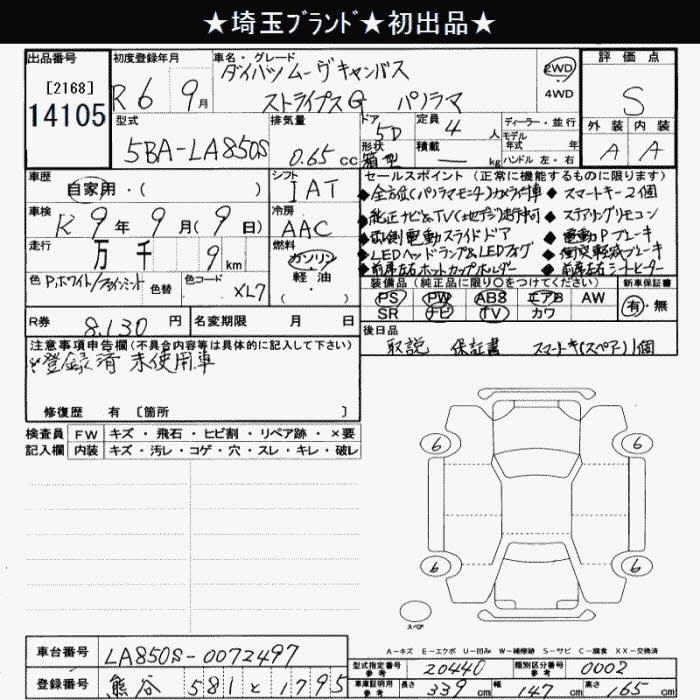 ★埼玉ﾌﾞﾗﾝﾄﾞ★初出品★
出品番号
[2168]
14105
初度登録年月
R6 9月
車名・グレード
ダイハツムーヴキャンバス
ストライプスG パノラマ
2WD
4WD
評価点
S
外装 内装
A A
型式
5BA-LA850S
排気量
0.65 cc
ドア
5D
形状
箱型
定員
4 人
積載
— kg
ディーラー・並行
モデル
年式 年
ハンドル 左・右
車歴
自家用・( )
シフト
IAT
車検
R 9年 9月(9日)
冷房
AAC
走行
万 千 9 km
燃料
ガソリン
軽・油
( )
色 P.ホワイト/
色替
色コード
XL7
セールスポイント (正常に機能するものに限ります)
◆全方位(パノラマモニタ)カメラ1博 ◆スマートキー2個
◆純正ナビ&TV(地デジ)走行中可 ◆ステアリングリモコン
◆両側電動スライドドア ◆電動Pブレーキ
◆LEDヘッドランプ&LEDフォグ ◆衝突軽減ブレーキ
◆前席左右ホットカップホルダー ◆前席左右シートヒーター
装備品 (純正品に限り○をつけてください)
新車保証書
PS PW ABS エアB AW
SR ナビ TV カワ
有・無
R券
8.130 円
名変期限 月 日
後日品
取説 保証書 スマートキー(スペア)1個
注意事項申告欄(不具合内容等は具体的に記入して下さい)
※登録済未使用車
修復歴 有 [箇所 ]
検査員 FW キズ・飛石・ヒビ割・リペア跡・×要
記入欄 内装 キズ・汚レ・コゲ・穴・スレ・キレ・破レ
6 6
6 6
スペア
A-キズ E-エクボ U-凹み W-補修跡 S-サビ C-腐食 XX-交換済
車台番号
LA850S-0072497
登録番号
熊谷 581 と 1795
型式指定番号
参考
20440
類別区分番号
参考
0002
車庫証明用
参考
長さ 339 cm 幅 147 cm 高さ 165 cm